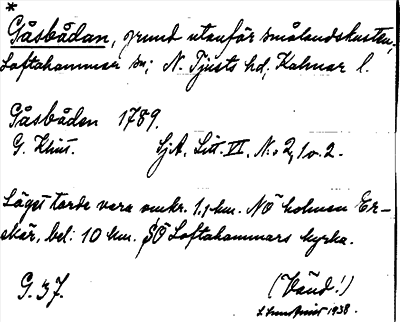 *
Gåsbådan, grund utanför smålandskusten,
Loftahammar sn; N. Tjusts hd, Kalmar l.
Gåsbåden 1789.
G. Klint. Sj.A, Litt. VI, N:o 2, 1 o. 2.
Läget torde vara omkr. 1,1 km. NÖ holmen Er-
skär, bel: 10 km. SÖ Loftahammars kyrka.
G. 37. (Vänd!)
1938.